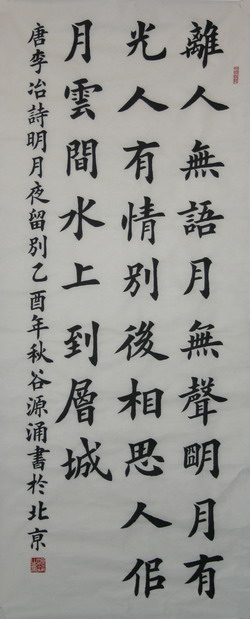 離人無語月無聲明月有
光人有情別後相思人佀
月雲間水上到層城
唐李冶詩明月夜留別乙酉年秋谷源涌書於北京